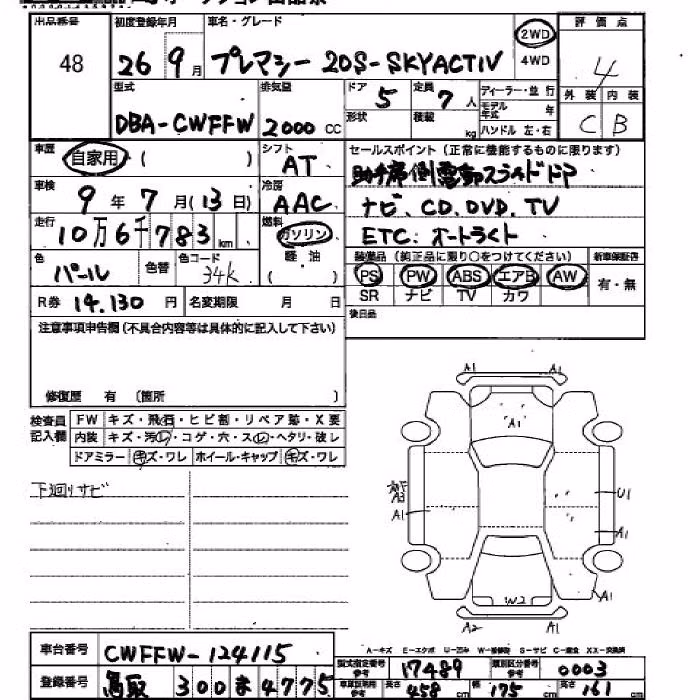 出品番号 初度登録年月 車名・グレード 評価点
48 26 9月 プレマシー 20S-SKYACTIV 2WD 4WD 4
型式 排気量 ドア 5 定員 7人 ディーラー・並行 外装 内装
DBA-CWFFW 2000cc 形状 積載 kg モデル年式 年 C B
ハンドル 左・右
車歴 自家用 ( ) シフト AT セールスポイント(正常に機能するものに限ります)
助手席側電動スライドドア
車検 9年7月(13日) 冷房 AAC ナビ.CD.DVD.TV
走行 10万6千783km 燃料 ガソリン 軽油 ( ) ETC.オートライト
色 パール 色替 色コード 34K 装備品(純正品に限り○をつけてください) 新車保証書
PS PW ABS エアB AW 有・無
SR ナビ TV カワ
R券 14.130円 名変期限 月 日 後日品
注意事項申告欄(不具合内容等は具体的に記入して下さい)
修復歴 有 (箇所 )
検査員記入欄 FW キズ・飛石・ヒビ割・リペア跡・X要
内装 キズ・汚レ・コゲ・穴・スレ・ヘタリ・破レ
ドアミラー キズ・ワレ ホイール・キャップ キズ・ワレ
下廻りサビ
A1 A1
A1
A3 U1
A1 A1
W2 A1
A2 A1
A-キズ E-エクボ U-凹み W-補修跡 S-サビ C-腐食 XX-交換済
車台番号 CWFFW-124115
型式指定番号 参考 17489 類別区分番号 参考 0003
登録番号 鳥取 300 ま 4775
車検証記載 参考 長さ 458cm 幅 175cm 高さ 161cm